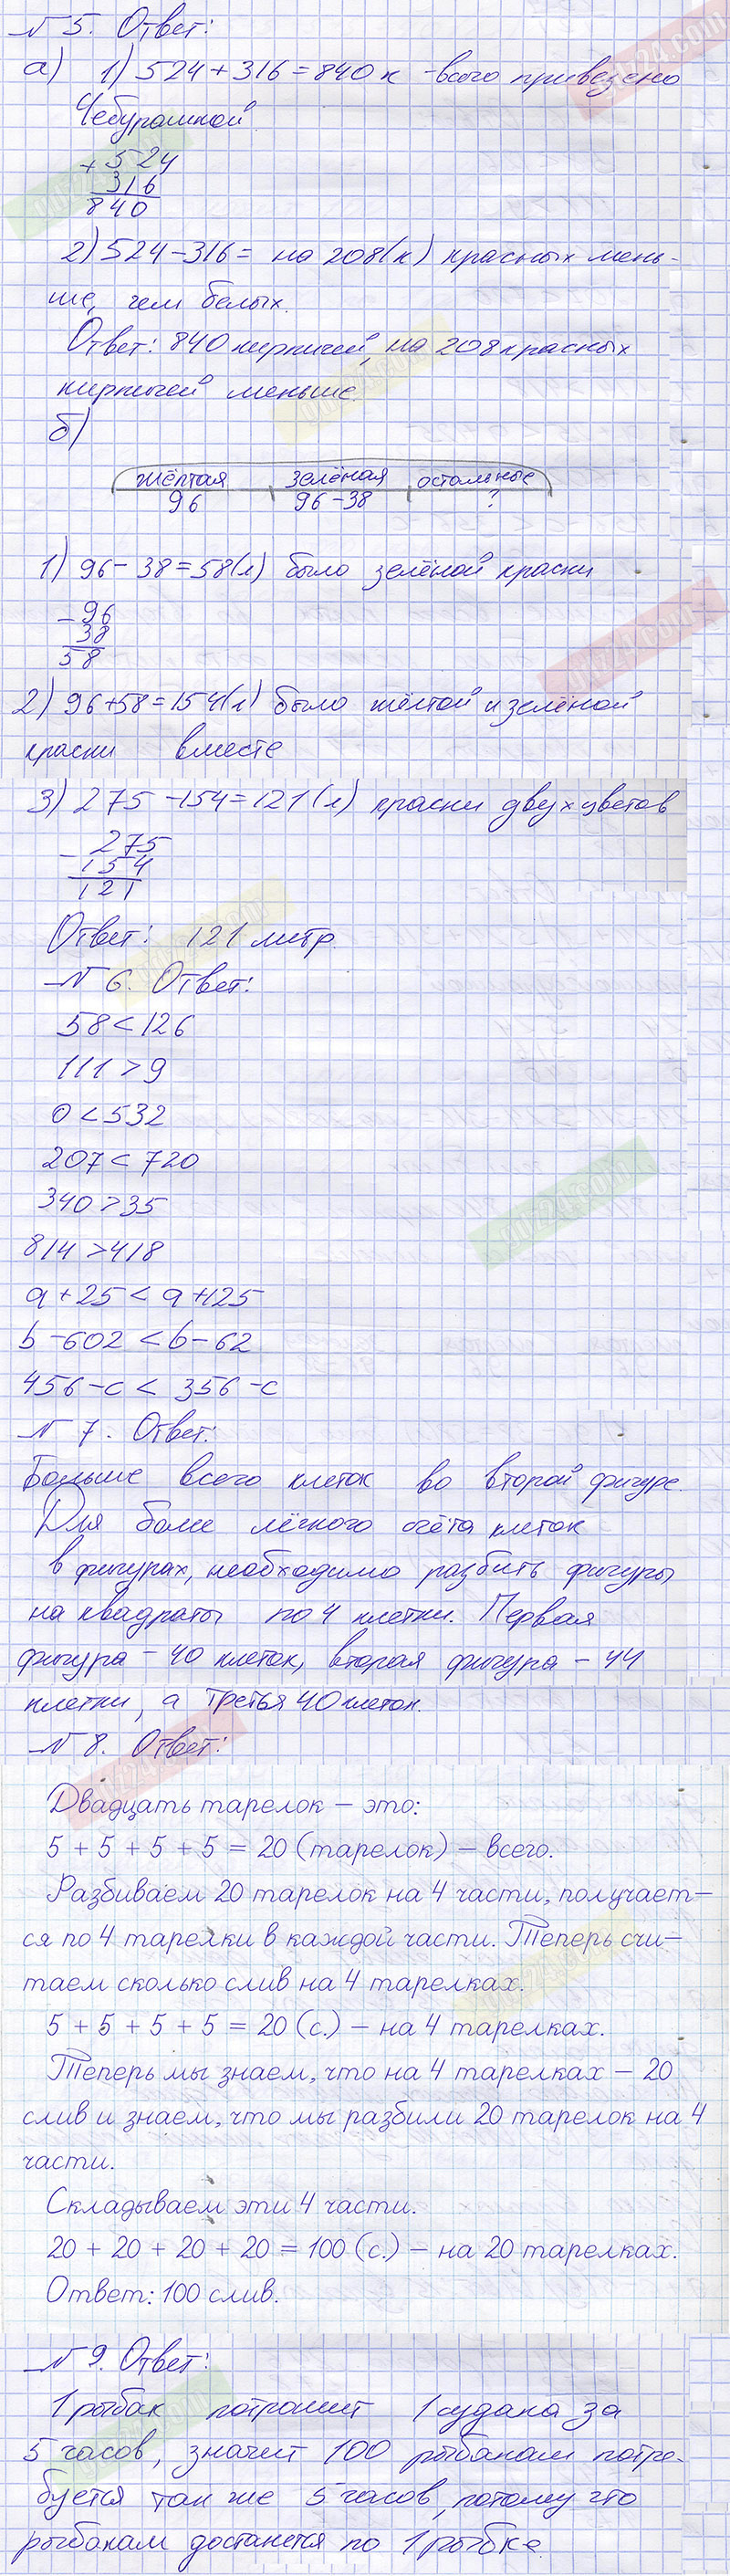 № 5. Ответ:
а) 1) 524 + 316 = 840 к - всего приведено
Чебурашкой.
+ 524
316
840
2) 524 - 316 = на 208 (к) красных мень-
ше, чем белых.
Ответ: 840 кирпичей, на 208 красных
кирпичей меньше.
б)
жёлтая зелёная остальные
96 96 - 38 ?
1) 96 - 38 = 58 (л) было зелёной краски
- 96
38
58
2) 96 + 58 = 154 (л) было жёлтой и зелёной
краски вместе
3) 275 - 154 = 121 (л) краски двух цветов
- 275
154
121
Ответ: 121 литр.
№ 6. Ответ:
58 < 126
111 > 9
0 < 532
207 < 720
340 > 35
814 > 418
а + 25 < а + 125
b - 602 < b - 62
456 - с < 356 - с
№ 7. Ответ:
Больше всего клеток во второй фигуре.
Для более лёгкого счёта клеток
в фигурах, необходимо разбить фигуры
на квадраты по 4 клетки. Первая
фигура - 40 клеток, вторая фигура - 44
клетки, а третья 40 клеток.
№ 8. Ответ:
Двадцать тарелок – это:
5 + 5 + 5 + 5 = 20 (тарелок) – всего.
Разбиваем 20 тарелок на 4 части, получает–
ся по 4 тарелки в каждой части. Теперь счи–
таем сколько слив на 4 тарелках.
5 + 5 + 5 + 5 = 20 (с.) – на 4 тарелках.
Теперь мы знаем, что на 4 тарелках – 20
слив и знаем, что мы разбили 20 тарелок на 4
части.
Складываем эти 4 части.
20 + 20 + 20 + 20 = 100 (с.) – на 20 тарелках.
Ответ: 100 слив.
№ 9. Ответ:
1 рыбак потрошит 1 судака за
5 часов, значит 100 рыбакам потре-
буется так же 5 часов, потому что
рыбакам достанется по 1 рыбке.